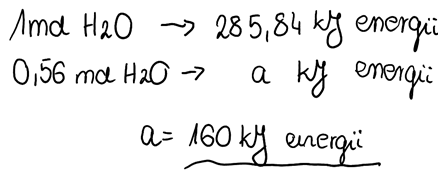 1mol H2O → 285,84 kJ energii
0,56 mol H2O → a kJ energii
a = 160 kJ energii